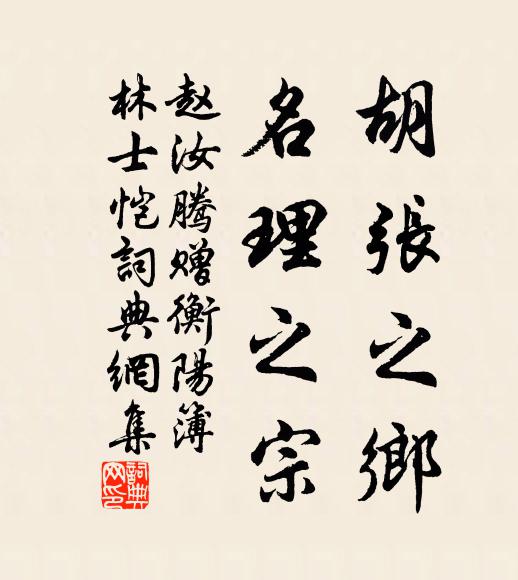 胡張之鄉
名理之宗
赵汝腾赠衡陽簿
林士恺詞典網集
詞典网印